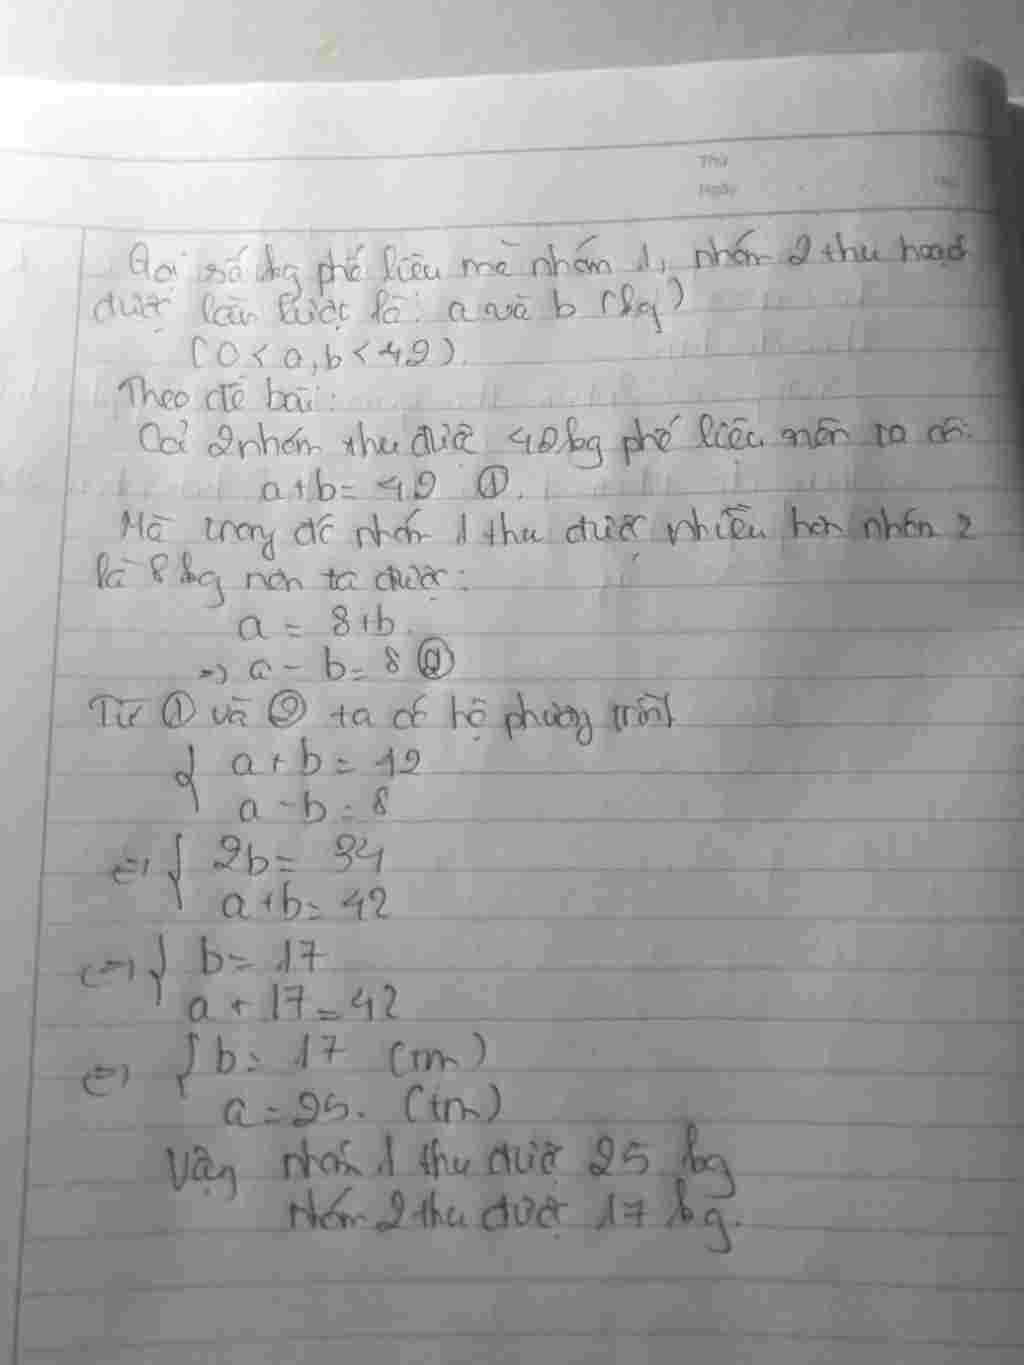 Thứ
Ngày
Gọi số kg phế liệu mà nhóm 1, nhóm 2 thu hoạch
được lần lượt là: a và b (kg)
(0 < a, b < 42).
Theo đề bài:
Cả 2 nhóm thu được 42kg phế liệu nên ta có:
a + b = 42 ①.
Mà trong đó nhóm 1 thu được nhiều hơn nhóm 2
là 8 kg nên ta được:
a = 8 + b.
=> a - b = 8 ②
Từ ① và ② ta có hệ phương trình
{ a + b = 42
a - b = 8
<=> { 2b = 34
a + b = 42
<=> { b = 17
a + 17 = 42
<=> { b = 17 (tm)
a = 25. (tm)
Vậy nhóm 1 thu được 25 kg
nhóm 2 thu được 17 kg.